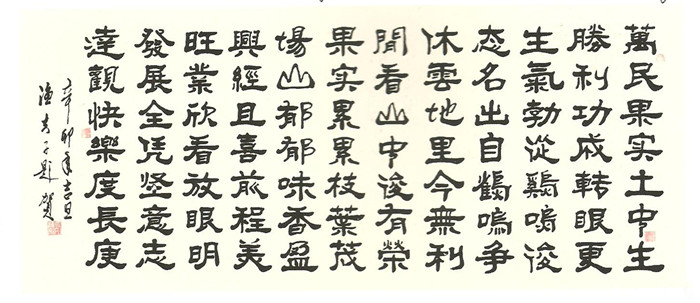 萬民果实土中生
勝利功成轉眼更
生氣勃從鷄鳴後
态名出自鶴鳴争
休雲地里今無利
閒看山中後有榮
果实累累枝葉茂
場山郁郁味香盈
興經且喜前程美
旺業欣看放眼明
發展全凭坚意志
達觀快樂度長庚
辛卯年吉旦
題賀